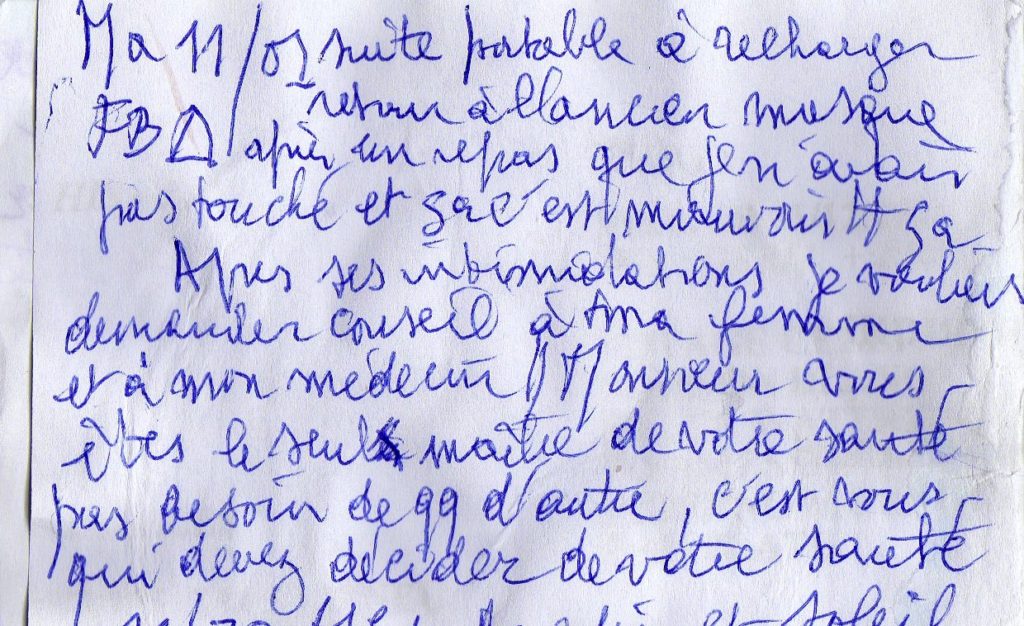 Ma 11/05 suite portable à recharger
retour à l'ancien masque
FBΔ après un repas que je n'avais
pas touché et ça c'est mauvais ça
Après ses intimidations je voulais
demander conseil à ma femme
et à mon médecin Monsieur vous
êtes le seul maître de votre santé
pas besoin de qq d'autre, c'est vous
qui devez décider de votre santé
et soleil